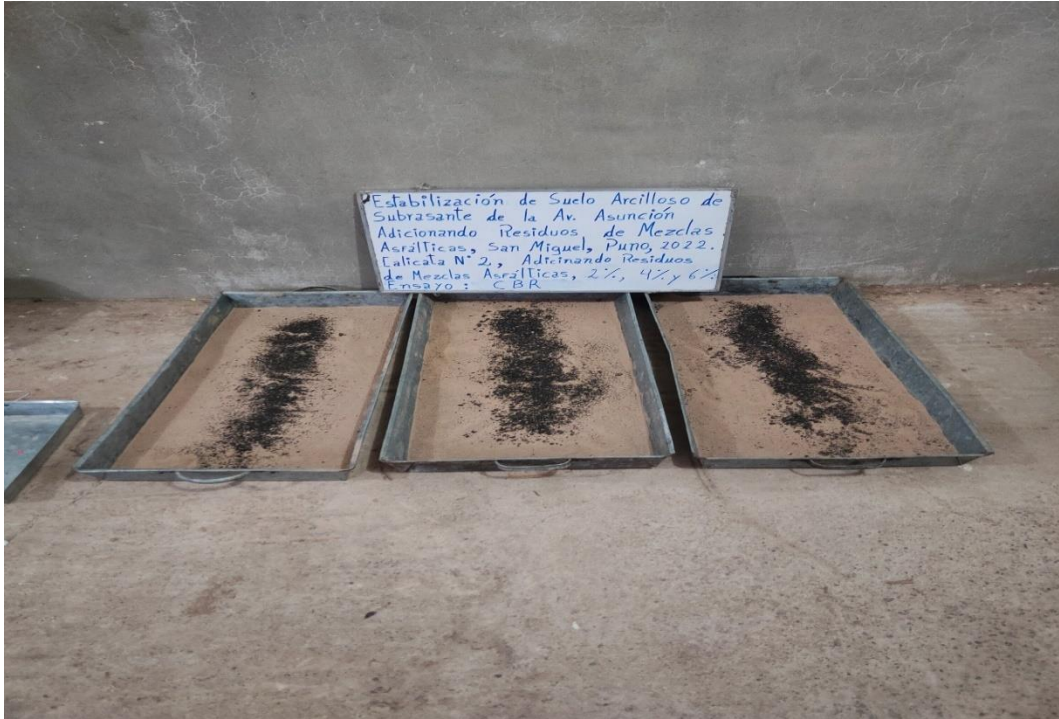 Estabilización de Suelo Arcilloso de
Subrasante de la Av. Asunción
Adicionando Residuos de Mezclas
Asfálticas, San Miguel, Puno, 2022.
Calicata N° 2, Adicinando Residuos
de Mezclas Asfálticas, 2%, 4% y 6%
Ensayo : CBR